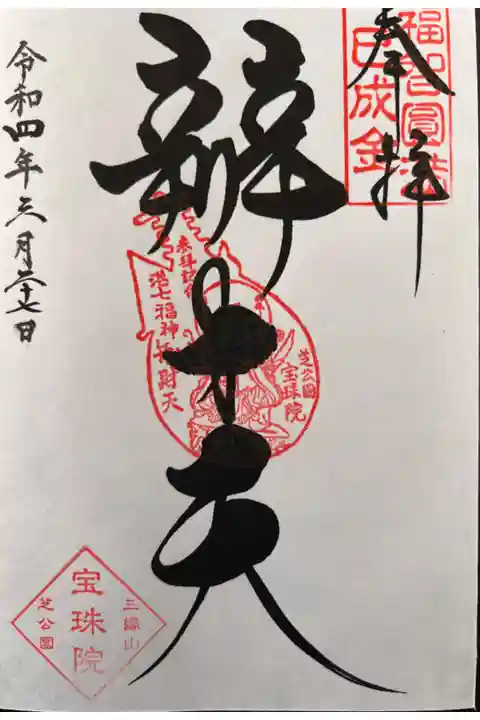 奉拝
福智圓満
巳成金
辨才天
参拝記念
港七福神
弁財天
芝公園
宝珠院
令和四年六月二十七日
三縁山
宝珠院
芝公園